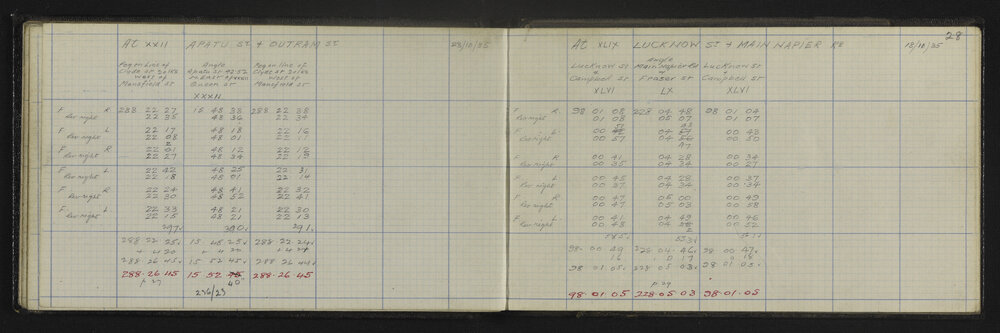 At XXII APATU ST & OUTRAM ST 23/10/35
Peg on line of Angle Peg on line of
Clyde St 20 lks Apatu St Clyde St 20 lks
West of West of
Mansfield St Queen St Mansfield St
F R 288 22 27 15 48 38 288 22 38
Rev right 22 35 48 36 22 34
F L 22 17 48 18 22 16
Rev right 22 08 48 01 22 11
F R 22 48 12 22 12
Rev right 22 27 48 34 22
F L 22 42 48 25 22 31
Rev right 22 18 48 01 22 14
F R 22 24 48 41 22 32
Rev right 22 30 48 52 22 41
F L 22 33 48 21 22 30
Rev right 22 15 48 21 22 13
297 291
288 22 25 15 48 25 288 22 24
+ 4 20 + 4 20
288 26 45 15 52 45 288 26
288-26-45 15 52 40" 288-26-45
p 27
236/23
28
At XLIX LUCKNOW ST & MAIN NAPIER RD 18/10/35
Angle
Lucknow St Main Napier Rd Lucknow St
& & &
Campbell St Fraser St Campbell St
XLVI LX XLVI
F R 98 01 08 228 04 48 98 01 04
Rev right 01 08 05 07 01 07
F L 00 04 00 48
Rev right 00 57 04 00 50
F R 00 41 04 28 00 34
Rev right 00 35 04 34 00 27
F L 00 45 04 28 00 37
Rev right 00 37 04 34 00 34
F R 00 47 05 00 00 49
Rev right 00 47 05 03 00 58
F L 00 41 04 49 00 46
Rev right 00 48 04 00 52
98-00 49 228 04-46 98 00 47
16 0 17 18
98 01 05 228 05 03 98 01
p 29
98-01-05 228-05-03 98-01-05